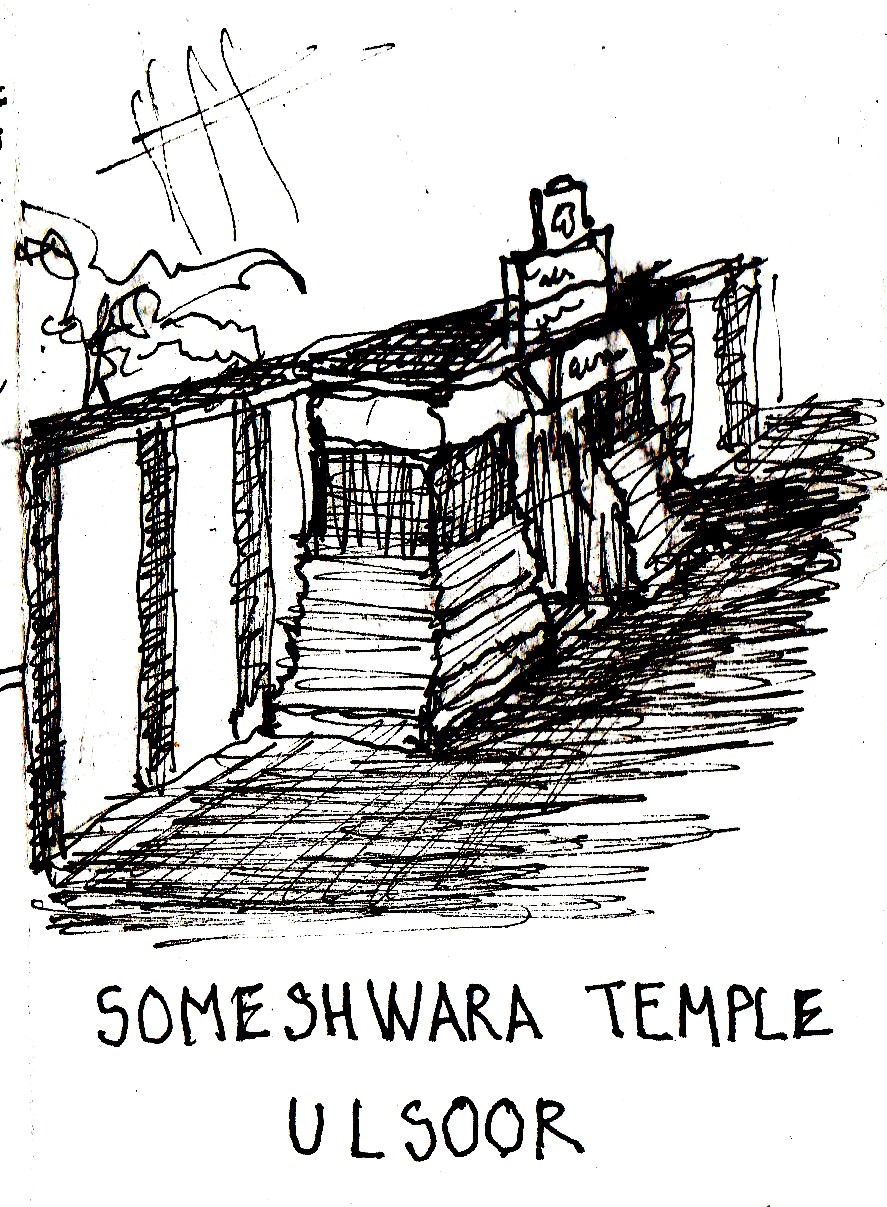 SOMESHWARA TEMPLE
ULSOOR